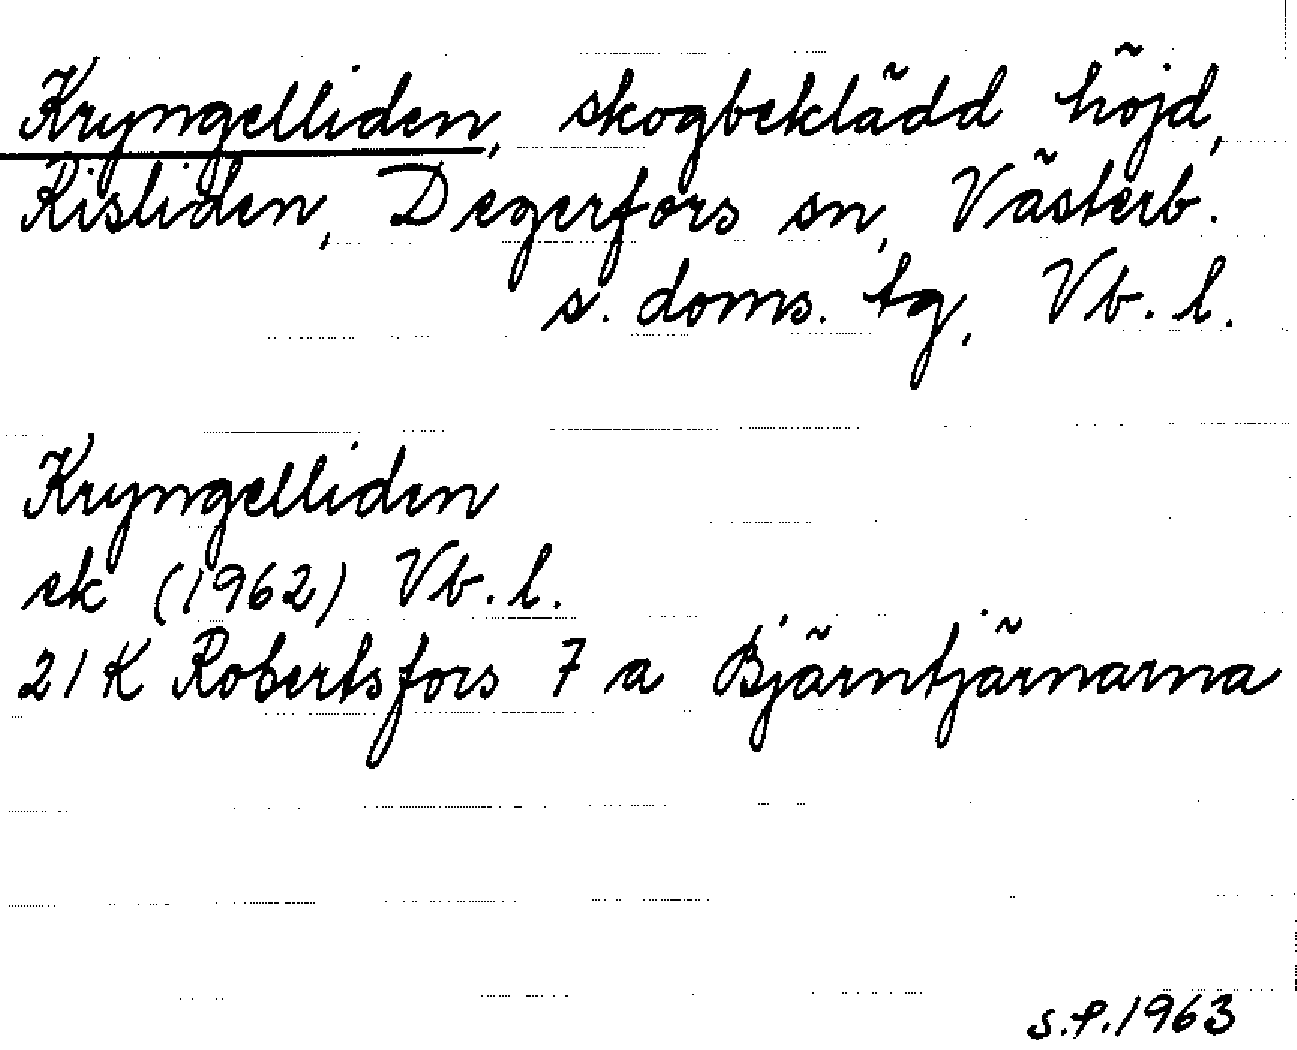 Kryngelliden, skogbeklädd höjd,
Risliden, Degerfors sn, Västerb.
s. doms. tg, Vb. l.
Kryngelliden
ek (1962) Vb. l.
21 K Robertsfors 7 a Bjärntjärnarna
S.P. 1963